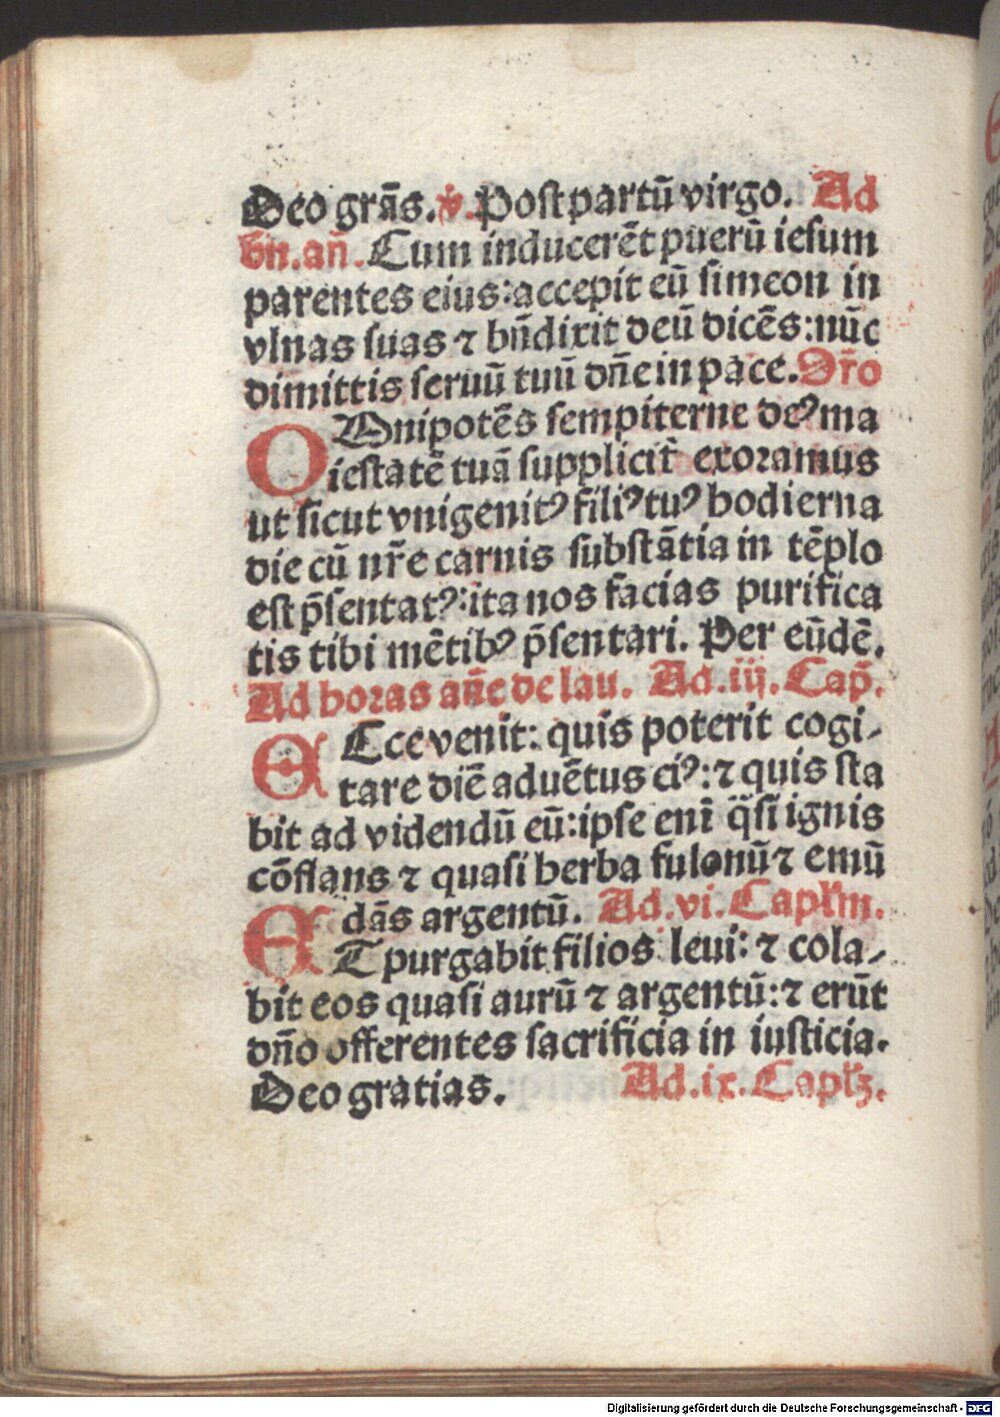 Deo grās. ꝟ. Post partū virgo. Ad
bn̄. an̄. Cum inducerēt puerū iesum
parentes eius: accepit eū simeon in
vlnas suas ⁊ bn̄dixit deū dicēs: nūc
dimittis seruū tuū dn̄e in pace. Or̄o
OMnipotēs sempiterne deꝰ ma
iestatē tuā supplicit̄ exoramus
ut sicut vnigenitꝰ filiꝰ tuꝰ hodierna
die cū nr̄e carnis substātia in tēplo
est p̄sentatꝰ: ita nos facias purifica
tis tibi mētibꝰ p̄sentari. Per eūdē.
Ad horas an̄e de lau. Ad. iij. Cap̄.
ECce venit: quis poterit cogi-
tare diē aduētus eiꝰ: ⁊ quis sta
bit ad videndū eū: ipse enī q̄si ignis
cōflans ⁊ quasi herba fulonū ⁊ emū
dās argentū. Ad. vi. Capl̄m.
ET purgabit filios leui: ⁊ cola-
bit eos quasi aurū ⁊ argentū: ⁊ erūt
dn̄o offerentes sacrificia in iusticia.
Deo gratias. Ad. ix. Capl̄ꝫ.
Digitalisierung gefördert durch die Deutsche Forschungsgemeinschaft - DFG